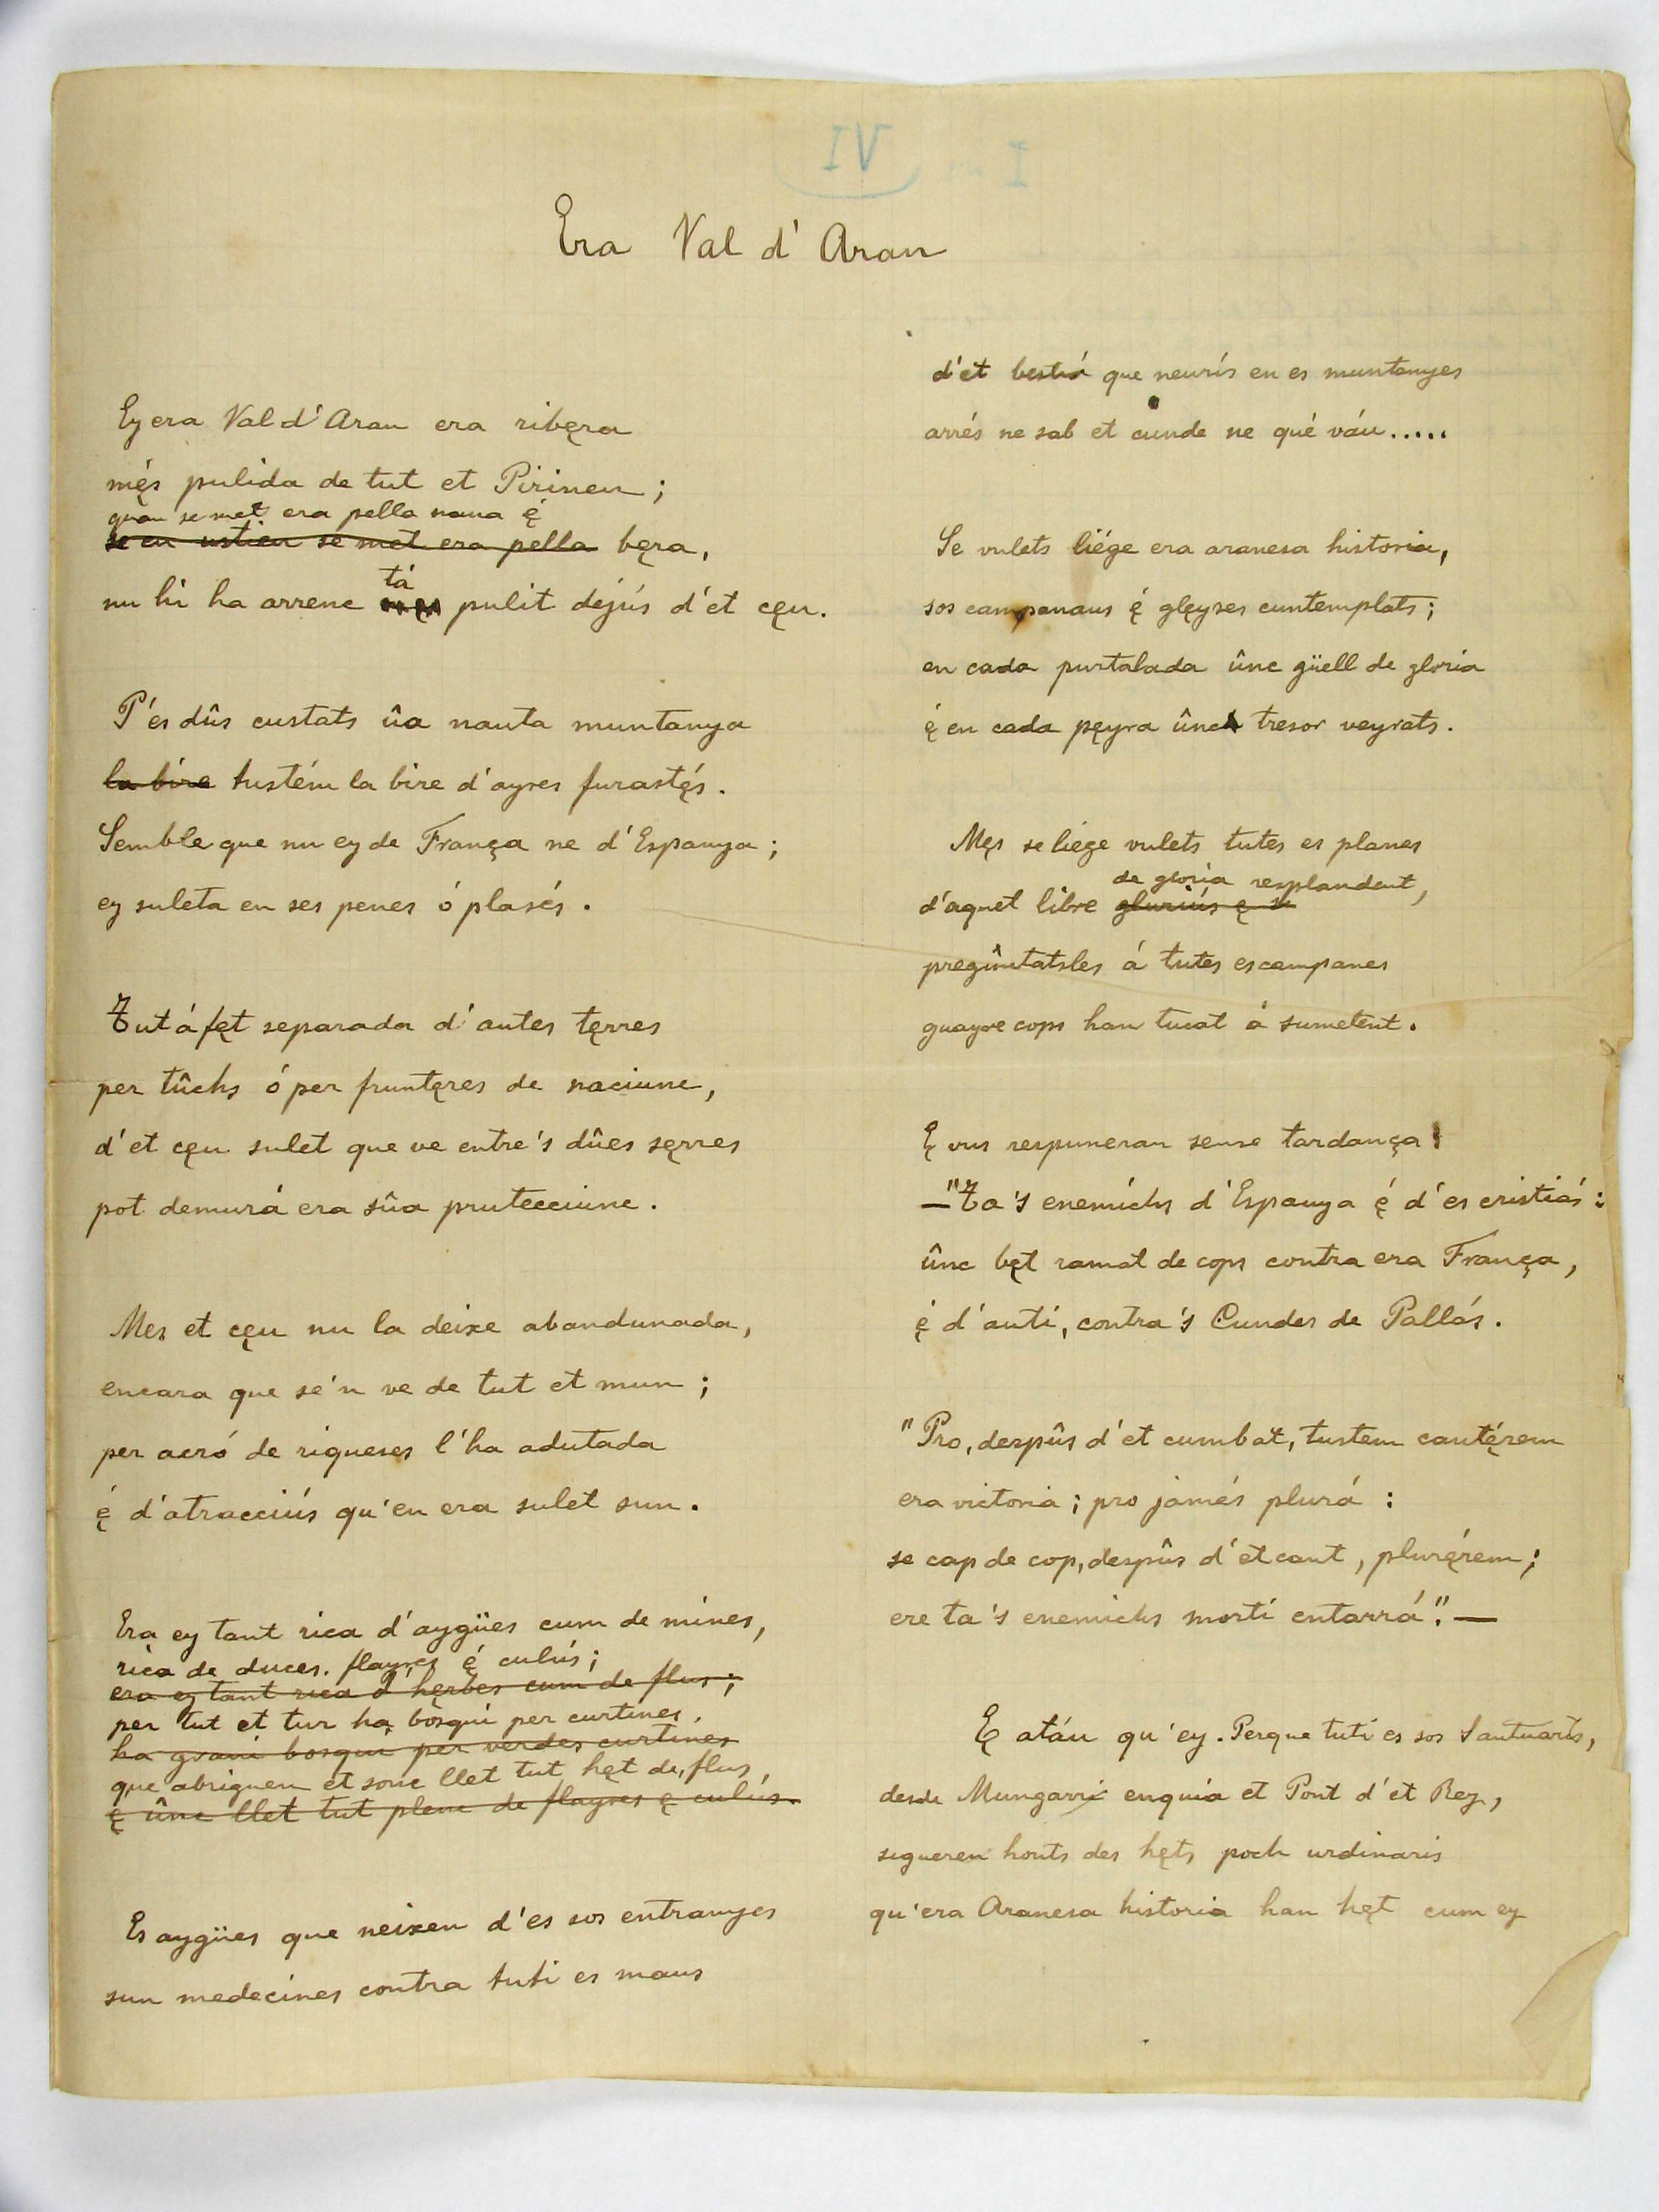 VI
Era Val d'Aran
Ey era Val d'Aran era ribęra
męs pulida de tut et Pirineu;
quan se met era pella naua ę́
se en ustieu se met era pella bęra,
nu hi ha arrene tá pulit dejús d'et cęu.
P'es dûs custats ûa nauta muntanya
la bire tustém la bire d'ayres furastęs.
Semble que nu ey de França ne d'Espanya;
ey suleta en ses penes ó plasés.
Tut á fęt separada d'autes tęrres
per tûchs ó per fruntęres de naciune,
d'et cęu sulet que ve entre's dûes sęrres
pot demurá era sûa prutecciune.
Mes et cęu nu la deixe abandunada,
encara que se'n ve de tut et mun;
per acró de riqueses l'ha adutada
ę́ d'atracciús qu'en era sulet sun.
Era ey tant rica d'aygües cum de mines,
rica de duces flayres ę́ culús;
era ey tant rica d'hęrbes cum de flus;
per tut et tur ha bosqui per curtines,
ha grani bosqui per verdes curtines
que abriguen et sone llet tut hęt de flus,
ę ûnc llet tut plenc de flayres ę culús.
Es aygües que neixen d'es sos entranyes
sun medecines contra tuti es maus
d'et bestiá que neurís en es muntanyes
arrés ne sab et cunde ne qué váu.....
Se vulets liége era aranesa historia,
sos campanaus ę́ glęyses cuntemplats;
en cada purtalada ûnc güell de gloria
ę́ en cada pęyra ûnc tresor veyrats.
Męs se liege vulets tutes es planes
de gloria resplandent,
d'aquet libre gluriús ę
pregûntatsles á tutes es campanes
guayre cops han tucat á sumetent.
Ę vus respuneran sense tardança:
—"Ta's enemíchs d'Espanya ę́ d'es cristiás:
ûnc bęt ramat de cops contra era França,
ę́ d'auti, contra's Cundes de Pallás.
"Pro, despûs d'et cumbat, tustem cantęrem
era victoria; pro jamés plurá:
se cap de cop, despûs d'et cant, plurę́rem;
ere ta's enemichs mortí entarrá."—
Ę atáu qu'ey. Perque tuti es sos Santuaris,
desde Mungarri enquia et Pont d'et Rey,
sigueren honts des hęts poch urdinaris
qu'era Aranesa historia han hęt cum ey